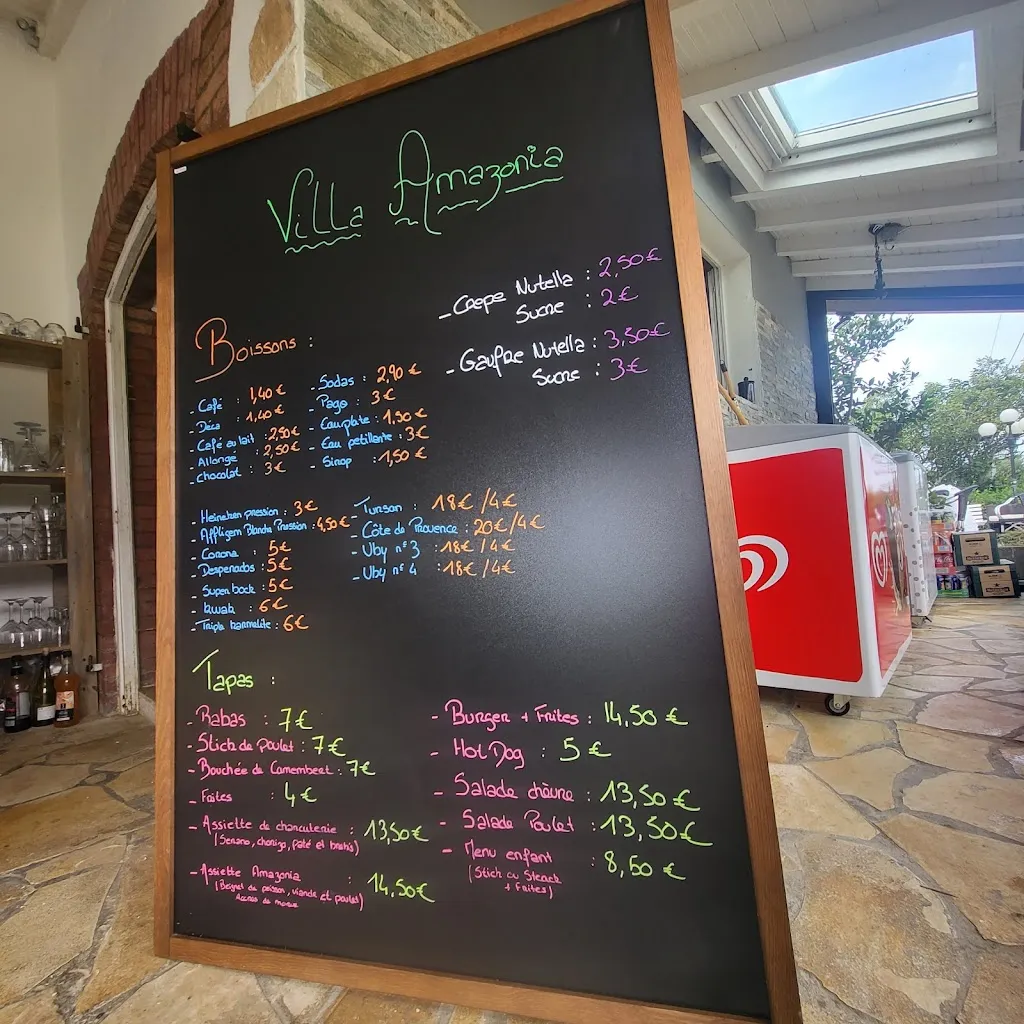 Villa Amazonia
- Crepe Nutella : 2,50€
Sucre : 2€
- Gaufre Nutella : 3,50€
Sucre : 3€
Boissons :
- Café : 1,40€
- Déca : 1,40€
- Café au lait : 2,50€
- Allonge : 2,50€
- Chocolat : 3€
- Sodas : 2,90€
- Pago : 3€
- Eau plate : 1,50€
- Eau petillante : 3€
- Sirop : 1,50€
- Heineken pression : 3€
- Affligem Blanche Pression : 4,50€
- Corona : 5€
- Desperados : 5€
- Super bock : 5€
- Kwak : 6€
- Triple karmelite : 6€
- Tursan : 18€ / 4€
- Côte de Provence : 20€ / 4€
- Uby n°3 : 18€ / 4€
- Uby n°4 : 18€ / 4€
Tapas :
- Rabas : 7€
- Stick de poulet : 7€
- Bouchée de Camembert : 7€
- Frites : 4€
- Assiette de charcuterie : 13,50€
(Serano, chorizo, paté et brebis)
- Assiette Amazonia : 14,50€
(Beignet de poisson, viande et poulet)
Accras de morue
- Burger + Frites : 14,50€
- Hot Dog : 5€
- Salade chèvre : 13,50€
- Salade Poulet : 13,50€
- Menu enfant : 8,50€
(Stick ou Steack
+ Frites)